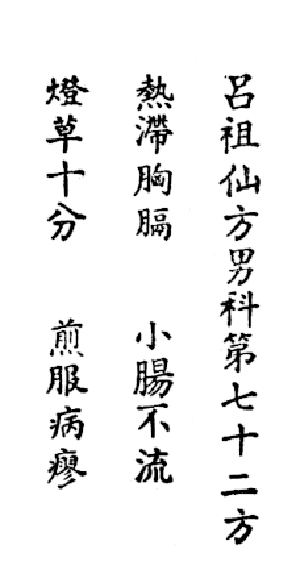 呂祖仙方男科第七十二方
熱滯胸膈　小腸不流
燈草十分　煎服病瘳